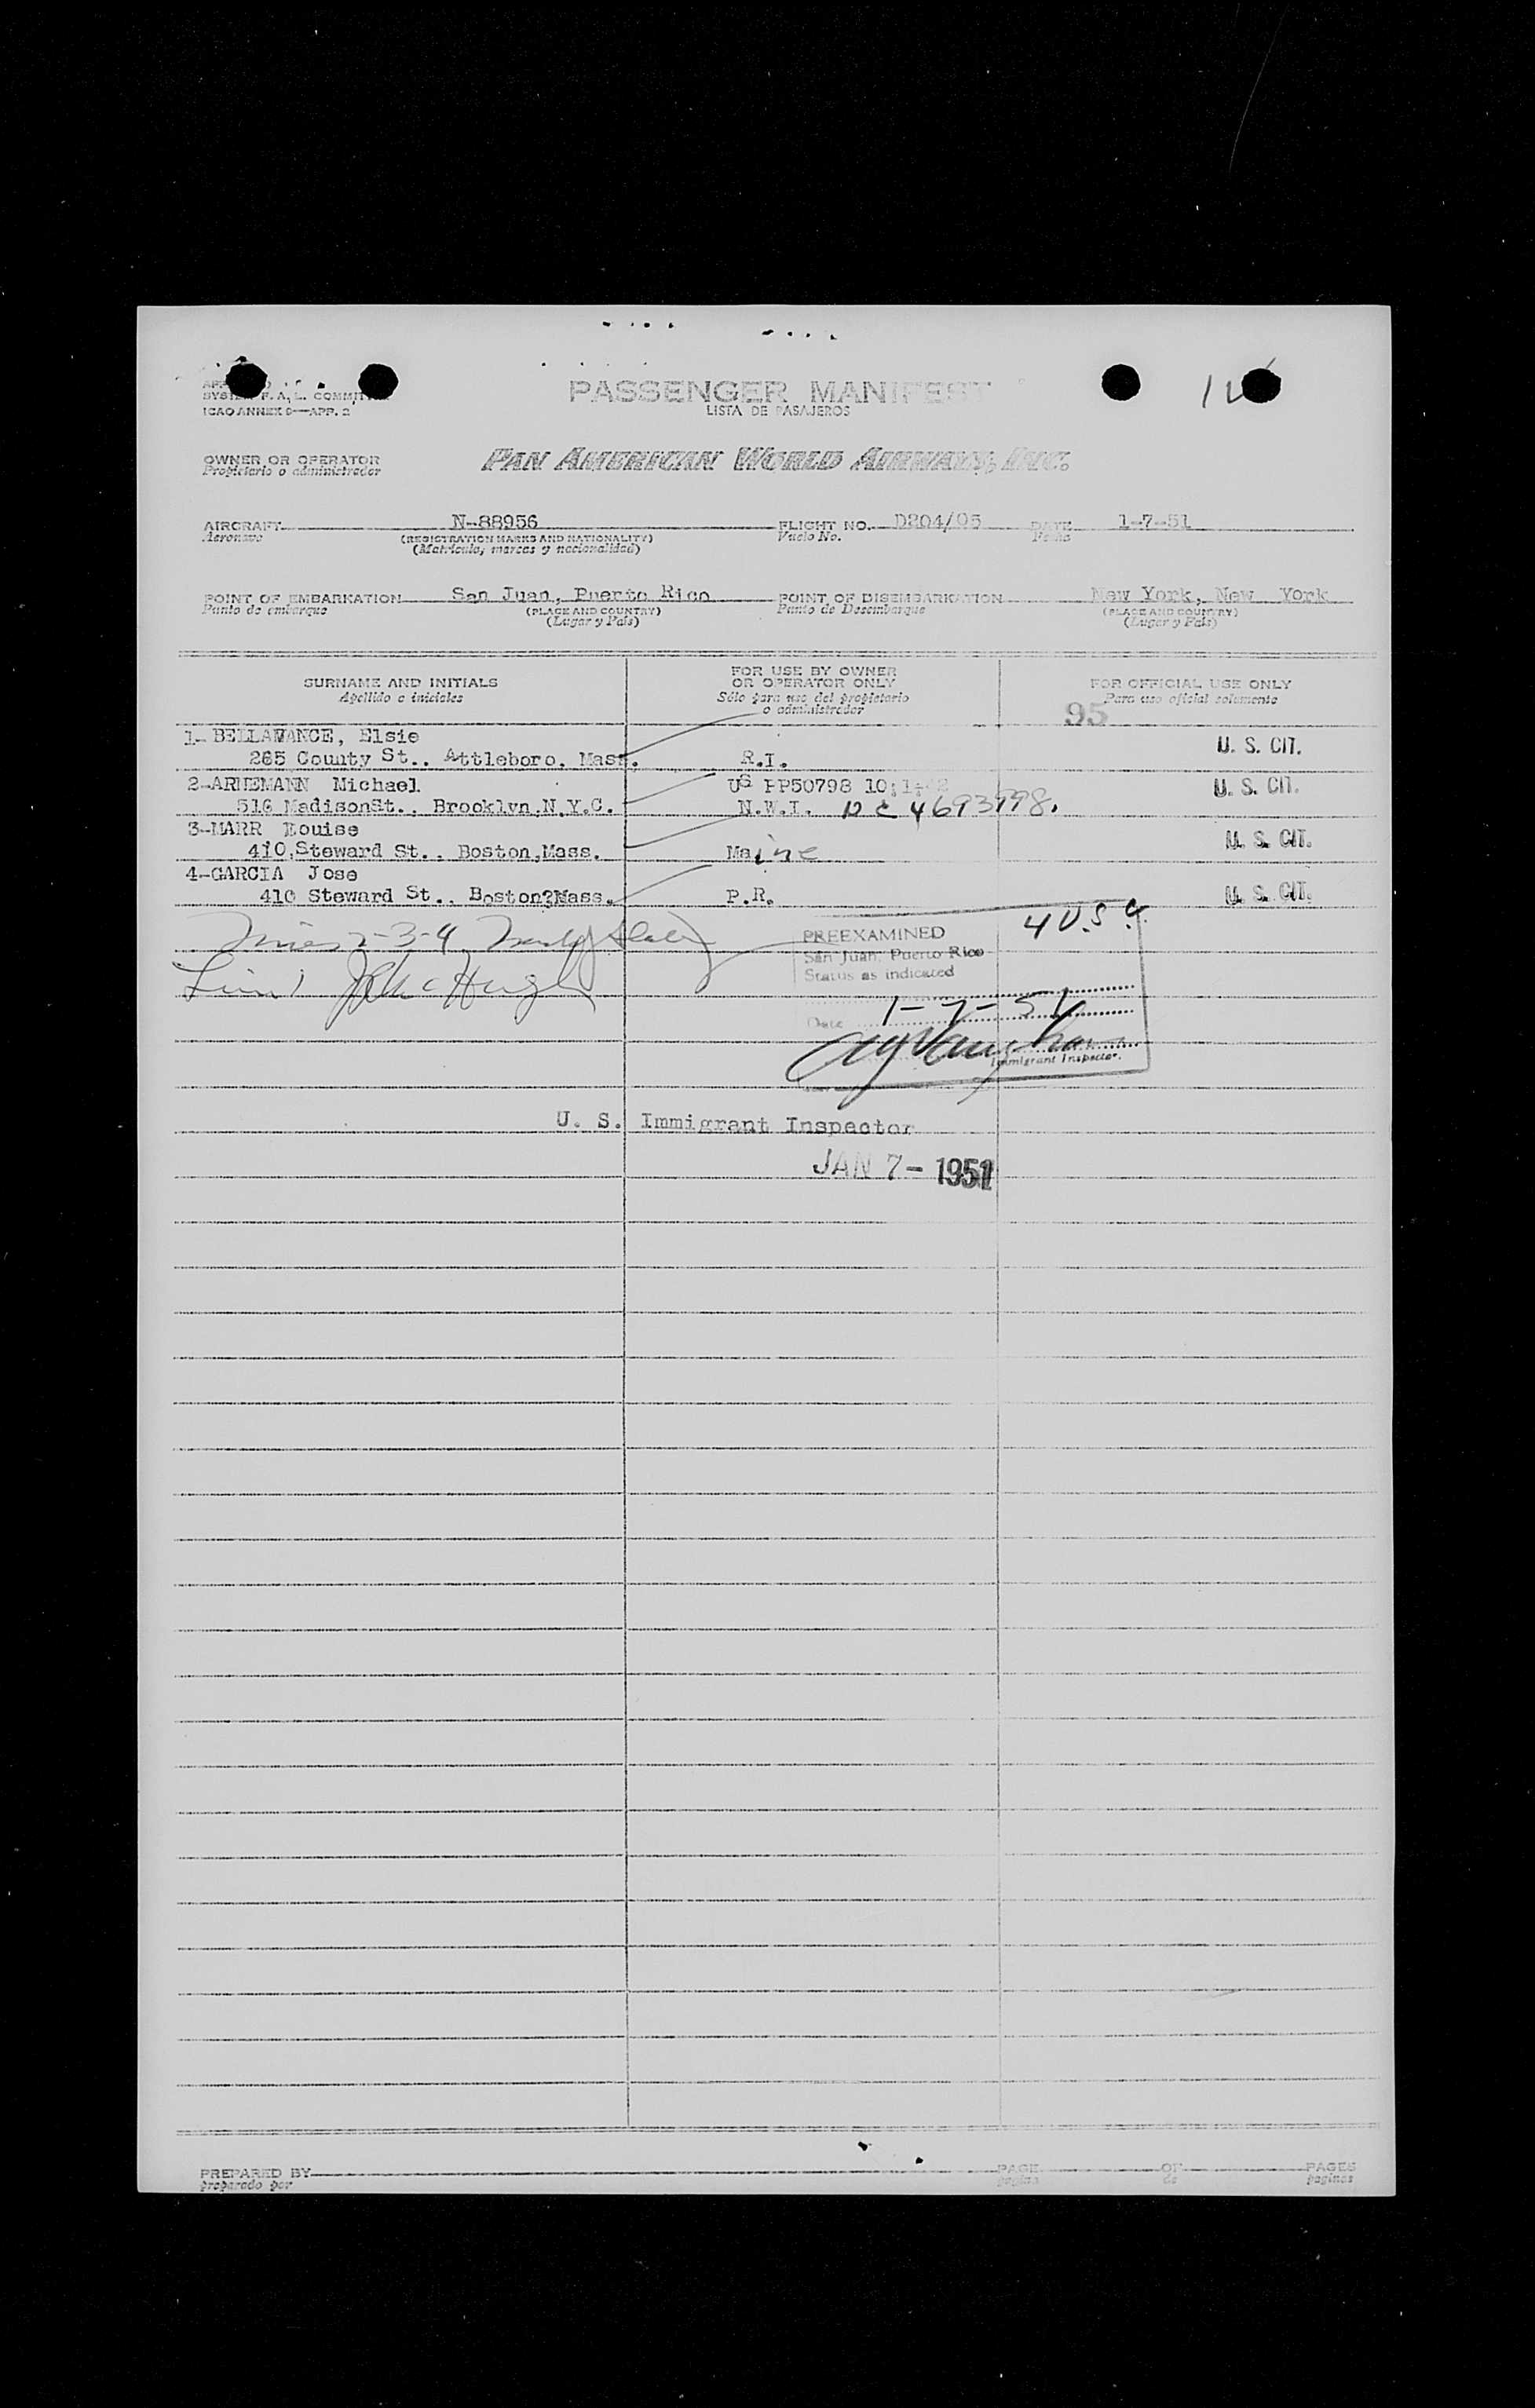 PASSENGER MANIFEST
LISTA DE PASAJEROS
SYSTEM F. A. L. COMMITTEE
ICAO ANNEX 9—APP. 2
OWNER OR OPERATOR
Propietario o administrador
PAN AMERICAN WORLD AIRWAYS, INC.
AIRCRAFT N-88956 FLIGHT NO. D204/05 DATE 1-7-51
Aeronave (REGISTRATION MARKS AND NATIONALITY) Vuelo No. Fecha
(Matrícula, marcas y nacionalidad)
POINT OF EMBARKATION San Juan, Puerto Rico POINT OF DISEMBARKATION New York, New York
Punto de embarque (PLACE AND COUNTRY) Punto de Desembarque (PLACE AND COUNTRY)
(Lugar y País) (Lugar y País)
SURNAME AND INITIALS
Apellido e iniciales
FOR USE BY OWNER
OR OPERATOR ONLY
Sólo para uso del propietario
o administrador
FOR OFFICIAL USE ONLY
Para uso oficial solamente
95
1- BELLAVANCE, Elsie U. S. CIT.
265 County St., Attleboro, Mass. R.I.
2-ARNEMANN Michael US PP50798 U. S. CIT.
516 MadisonSt., Brooklyn,N.Y.C. N.W.I. 4693998.
3-MARR Louise U. S. CIT.
410,Steward St., Boston,Mass. Maine
4-GARCIA Jose
410 Steward St., Boston?Mass. P.R. U. S. CIT.
4 U.S.C.
PREEXAMINED
San Juan, Puerto Rico
Status as indicated
Date 1-7-51
Immigrant Inspector.
U. S. Immigrant Inspector
JAN 7- 1951
PREPARED BY PAGE OF PAGES
preparado por pagina de paginas